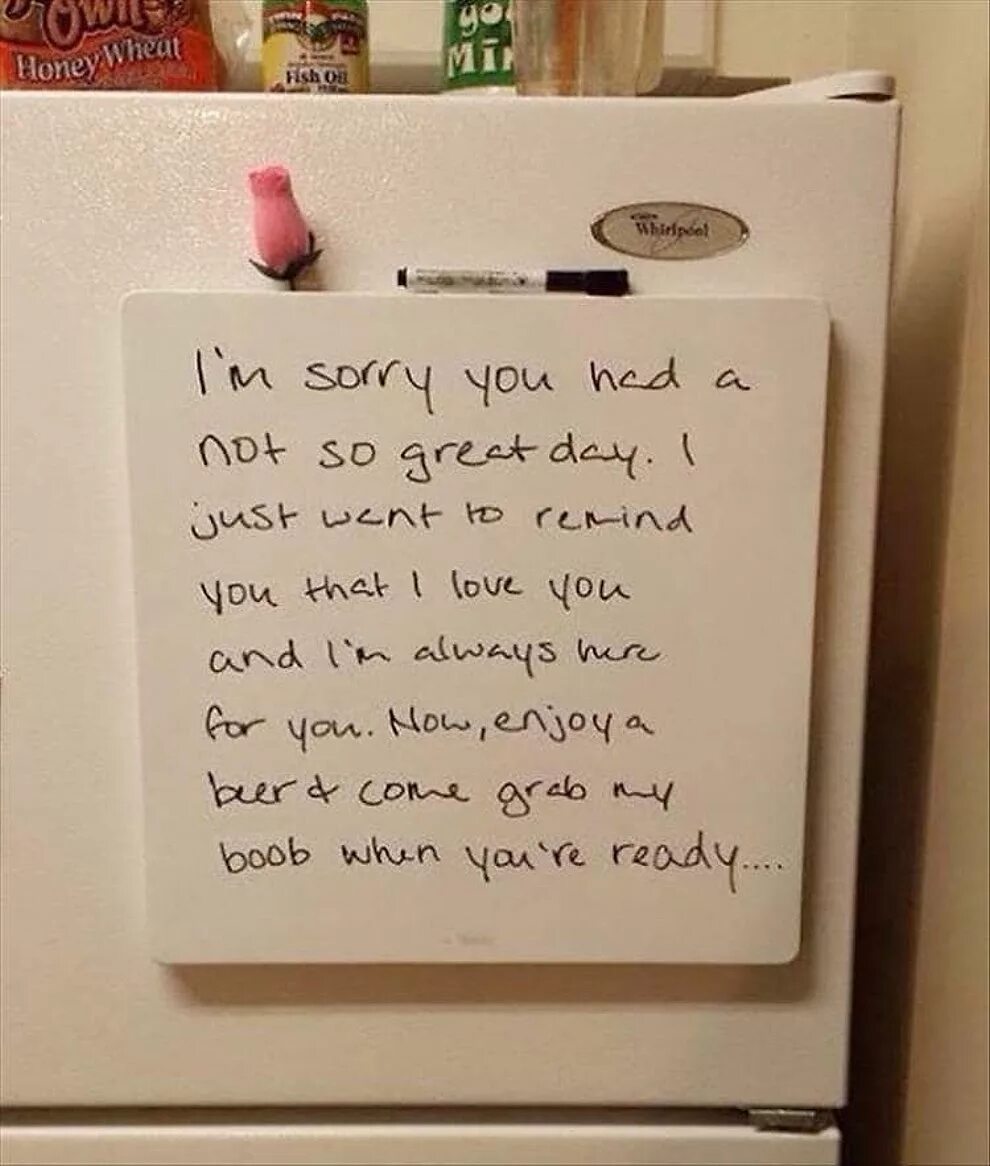 Own
Honey Wheat
Fish Oil
yo
Mi
Whirlpool
I'm sorry you had a
not so great day. I
just want to remind
you that I love you
and I'm always here
for you. Now, enjoy a
beer & come grab my
boob when you're ready....